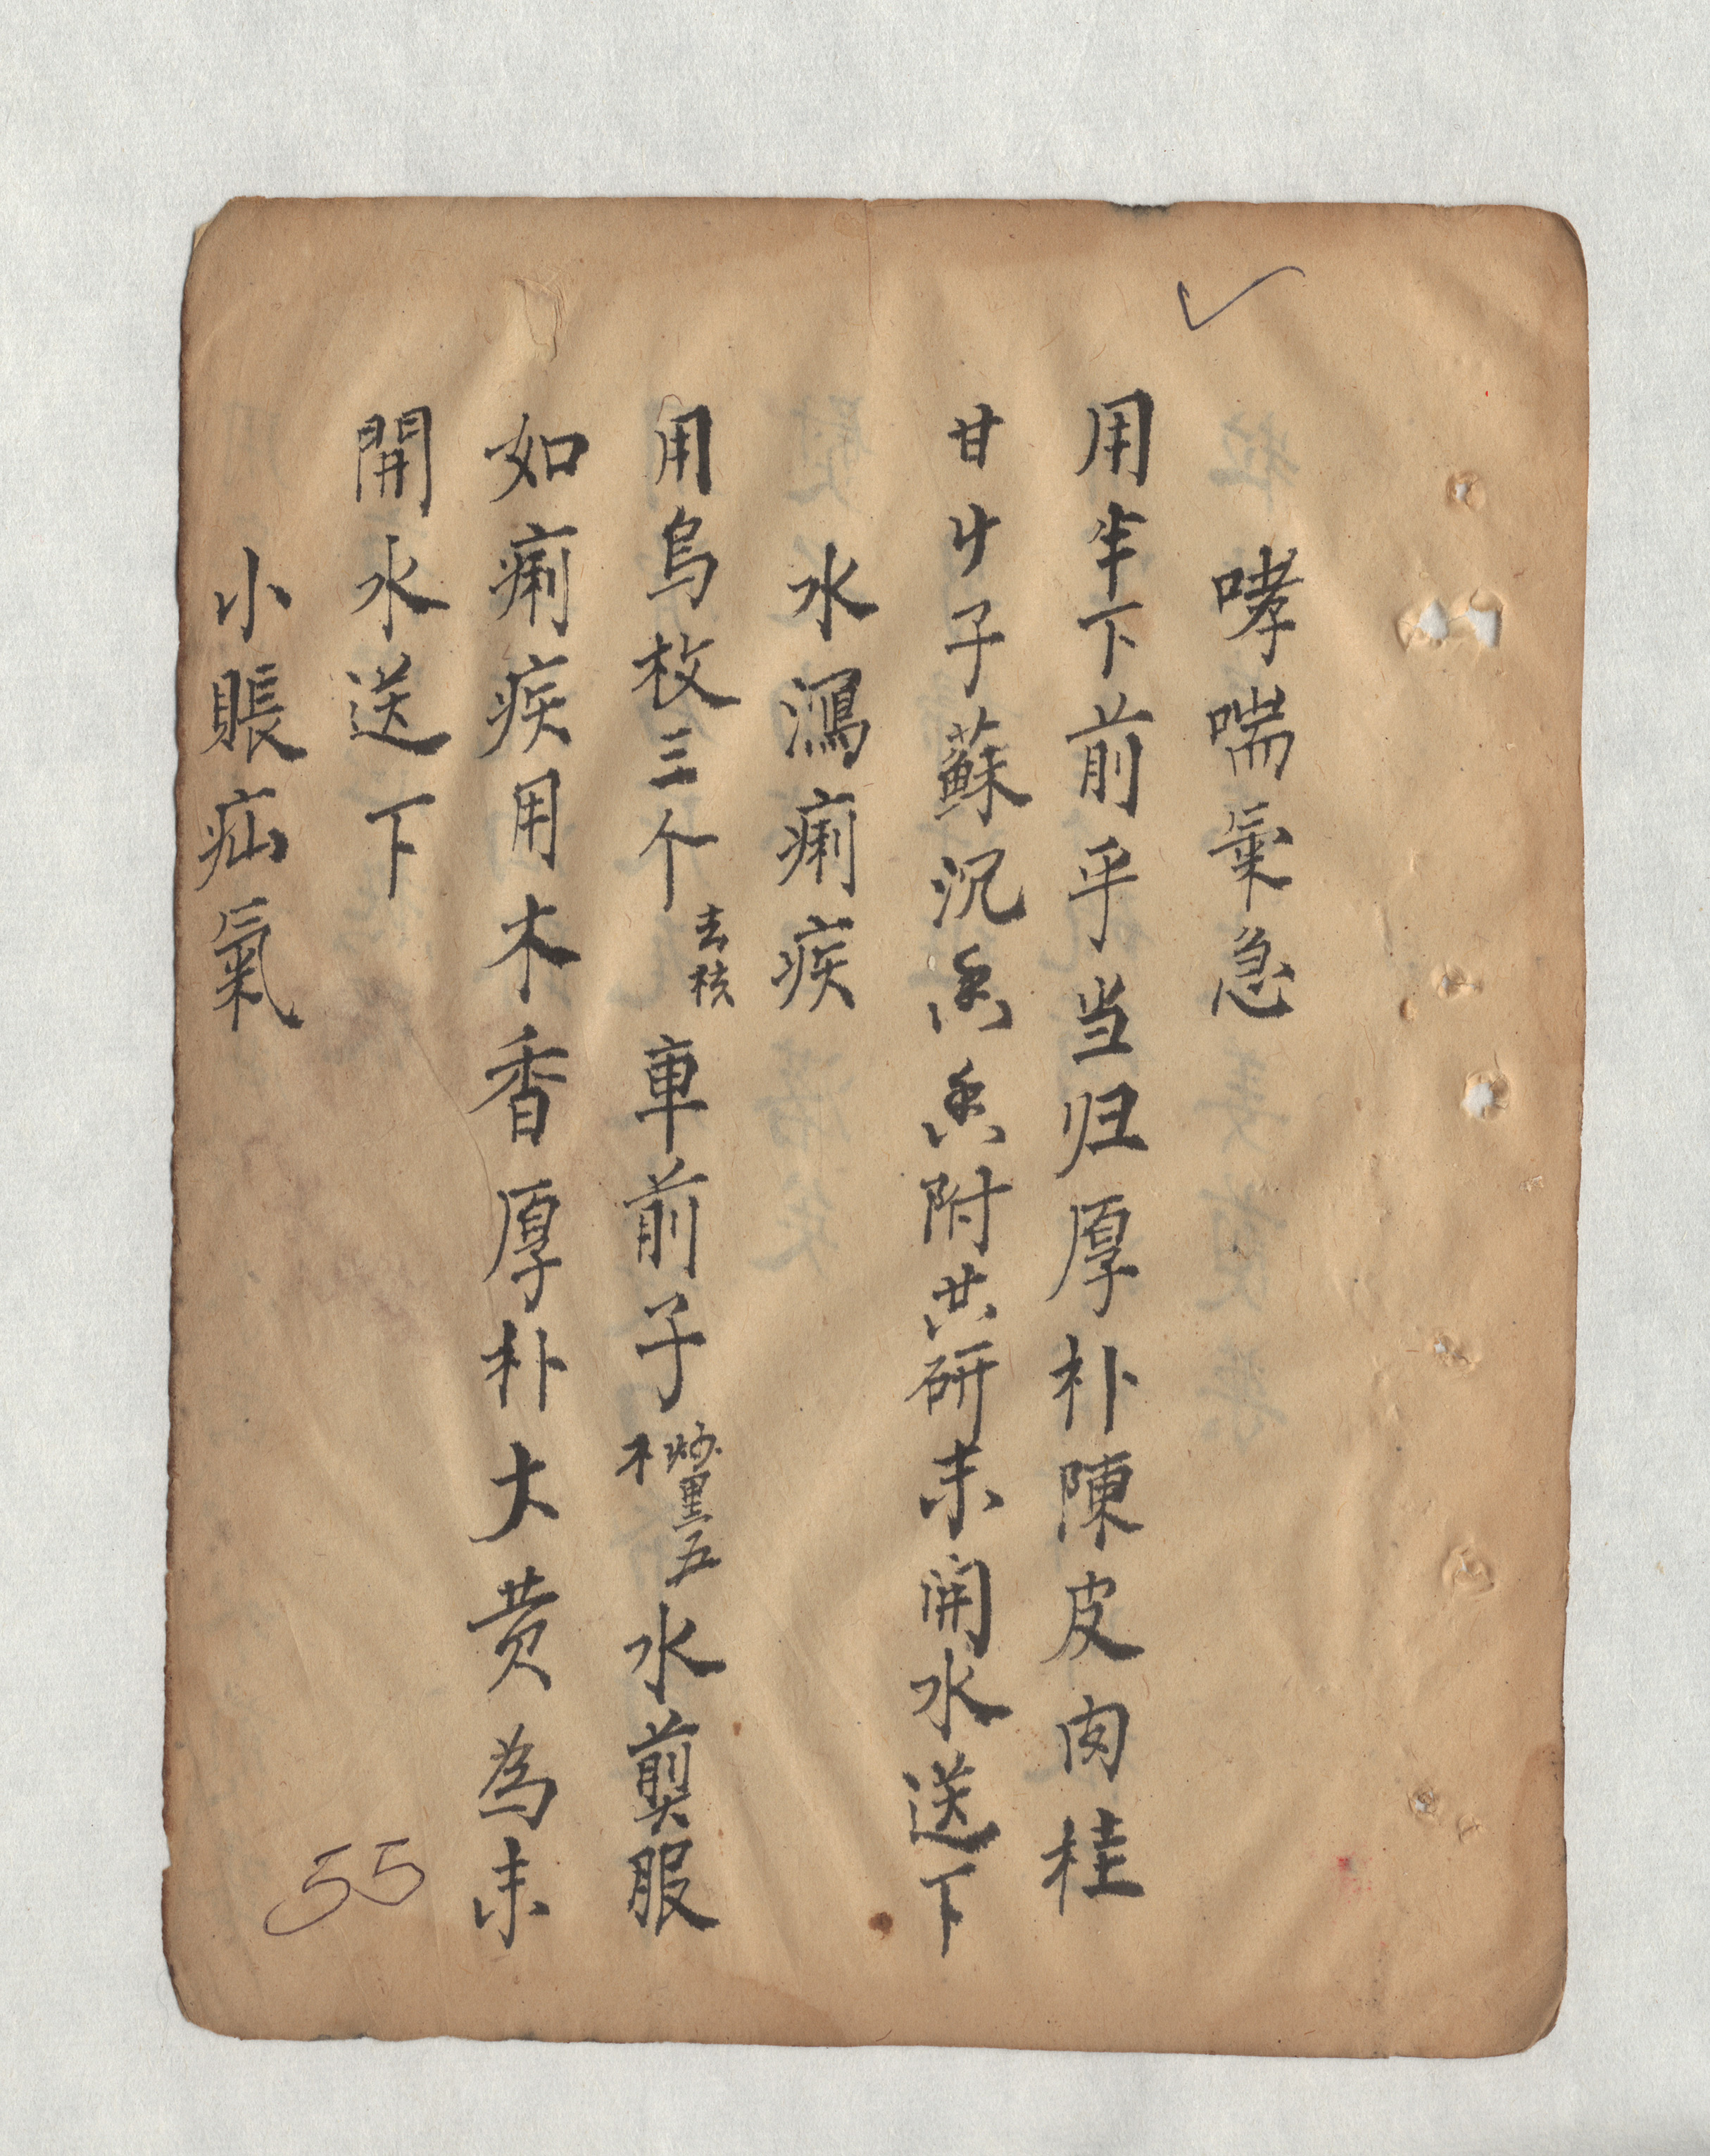 哮喘氣急
用半下前乎当归厚朴陳皮肉桂
甘廾子蘇沉香香附共研末開水送下
水瀉痢疾
用烏枚三个去核車前子炒黑五水剪服
如痢疾用木香厚朴大黄為末
開水送下
小賬疝氣
55